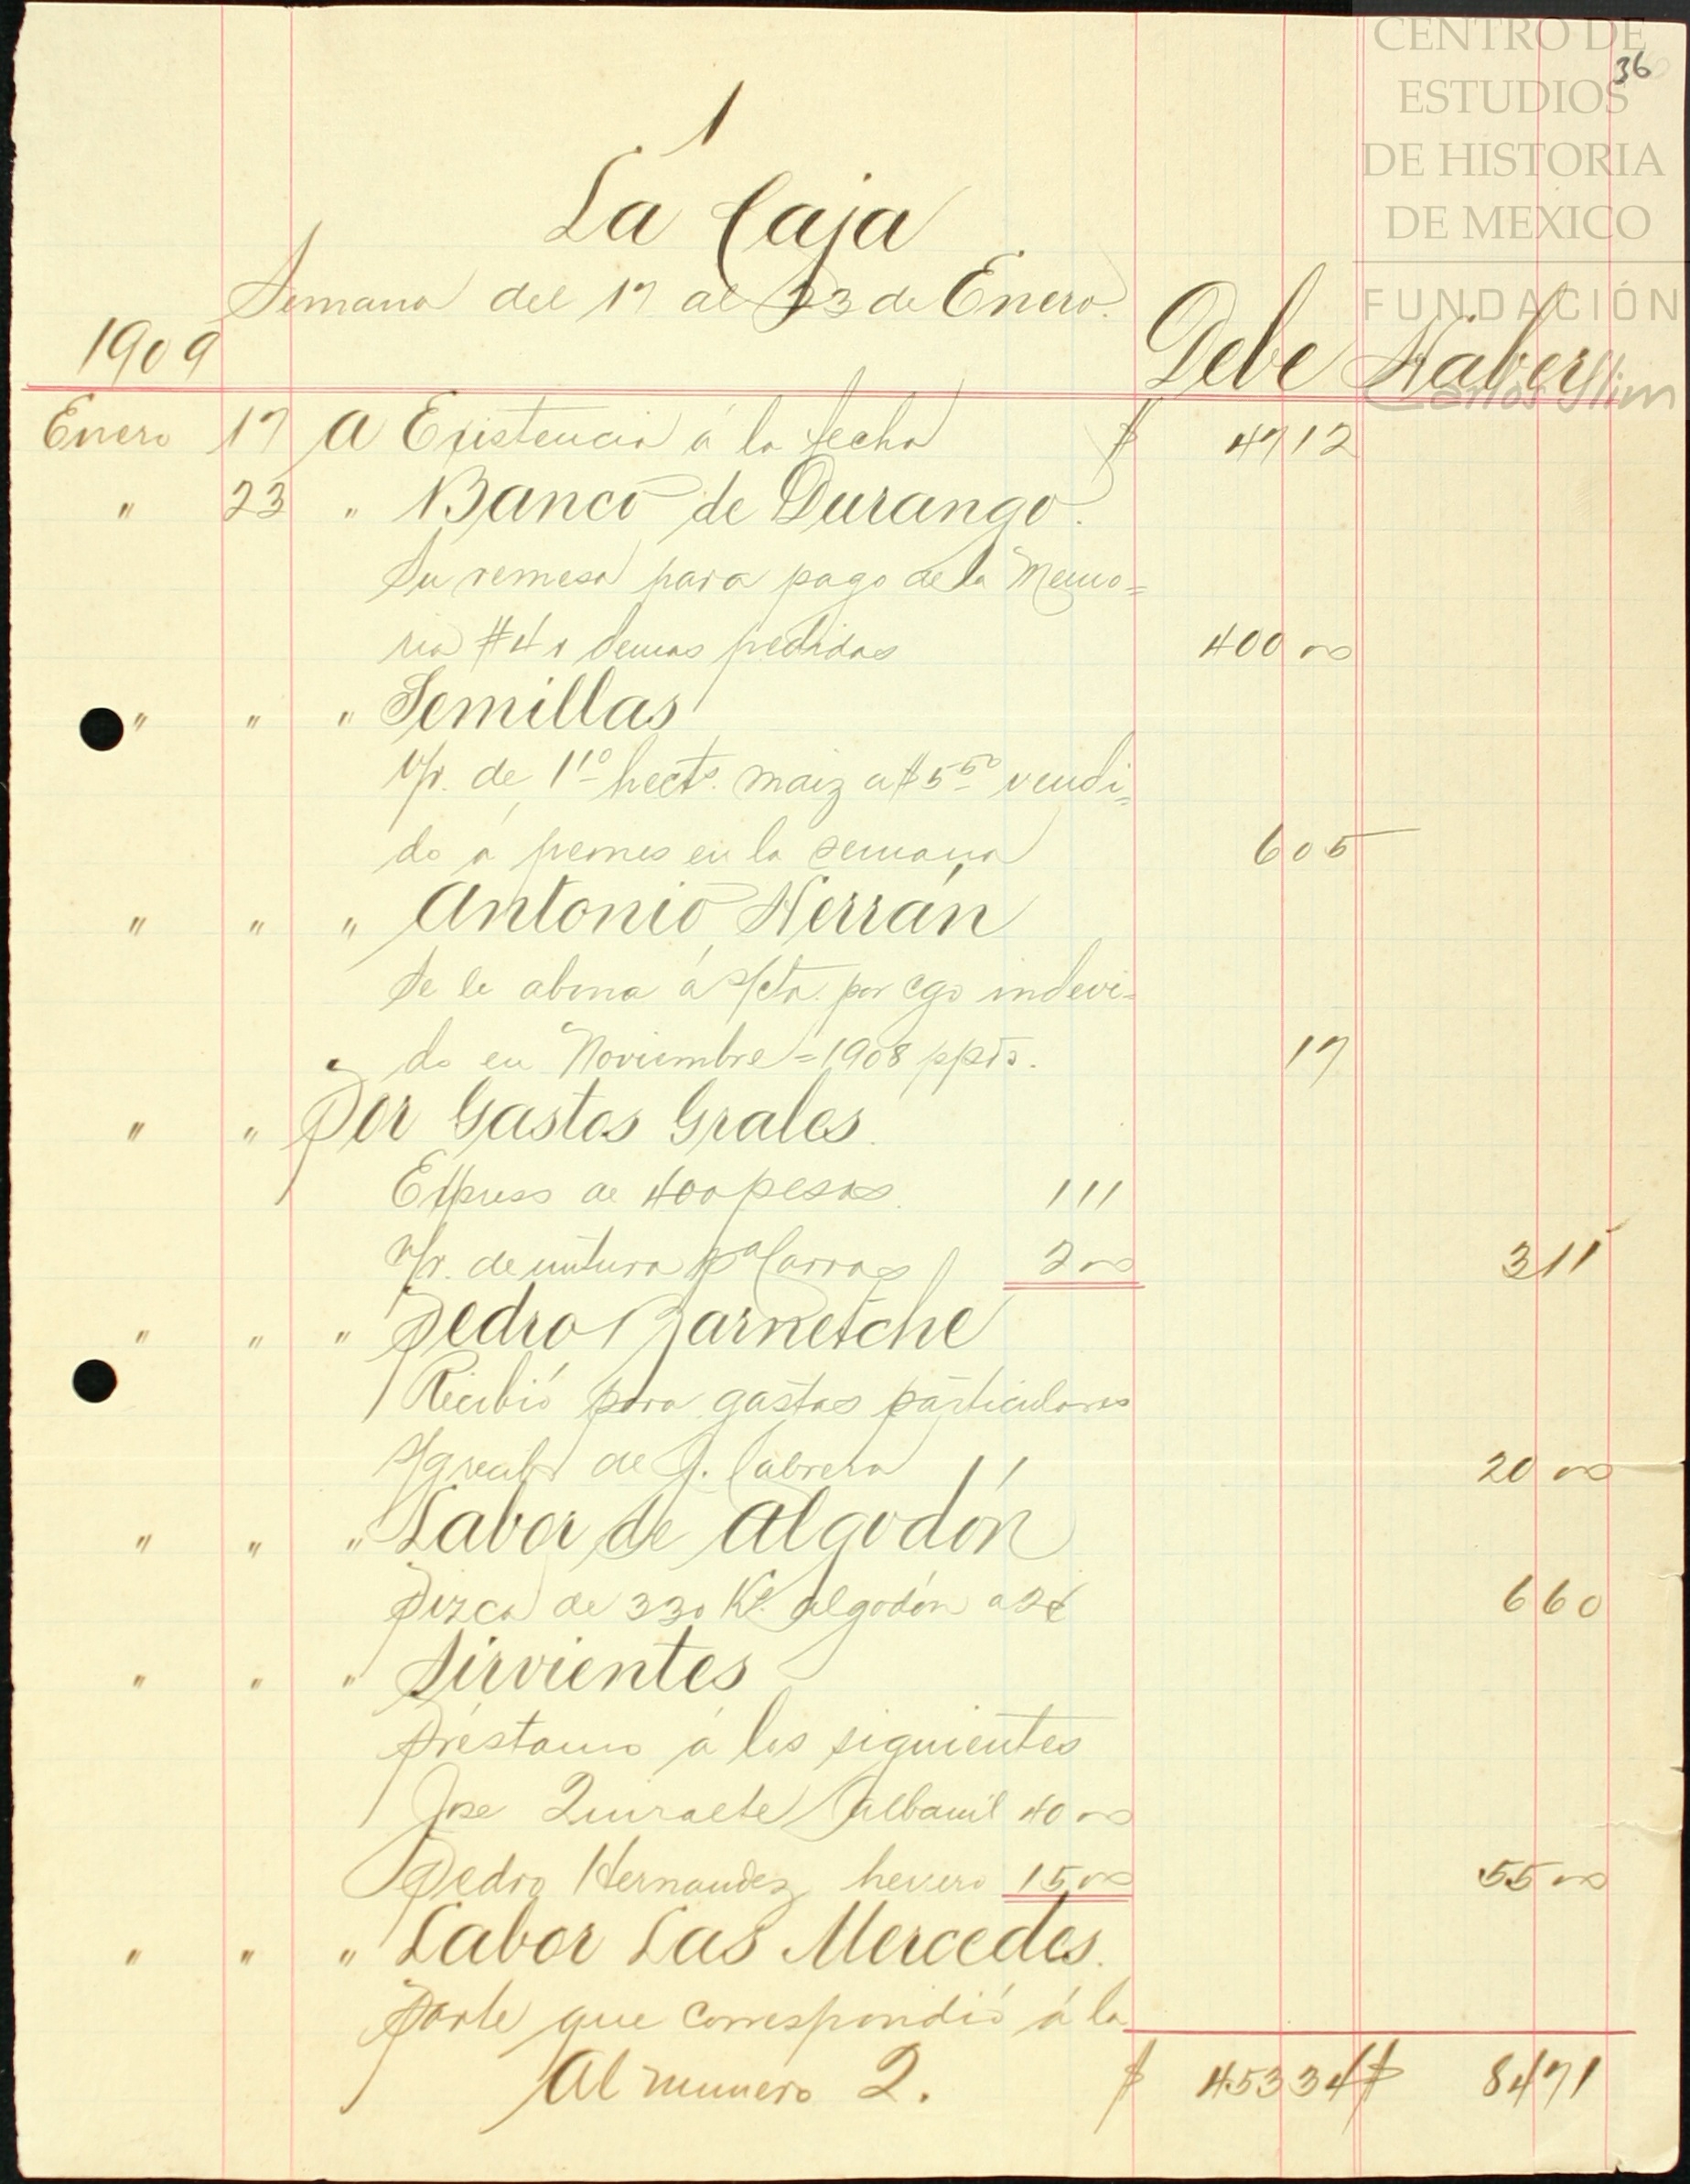 CENTRO DE
36
ESTUDIOS
DE HISTORIA
DE MEXICO
FUNDACIÓN
Carlos Slim
1
La Caja
Semana del 17 al 23 de Enero.
1909 Debe Haber
Enero 17 A Existencia á la fecha $ 47 12
" 23 " Banco de Durango.
Su remesa para pago de la Memo=
ria #4 y demas pedidos 400 00
" " " Semillas
V/r. de 1 10 hects. maiz a $5 50 vendi=
do a peones en la semana 6 05
" " " Antonio Herrán
Se le abona á s/cta. por cgo indevi-
do en Noviembre=1908 ppdo. 17
" " Por Gastos Grales.
Express de 400 pesos. 1 11
V/r. de untura pa Carros 2 00 3 11
" " " Pedro Barnetche
Recibió para gastos particulares
de J. Cabrera 20 00
" " " Labor de Algodón
Pizca de 330 Ks. algodón a 2¢ 6 60
" " " Sirvientes
Préstamo á los siguientes
Jose albanil 40 00
Pedro Hernandez hevero 15 00 55 00
" " " Labor Las Mercedes.
Parte que correspondió á la
Al numero 2. $ 453 34 $ 84 71